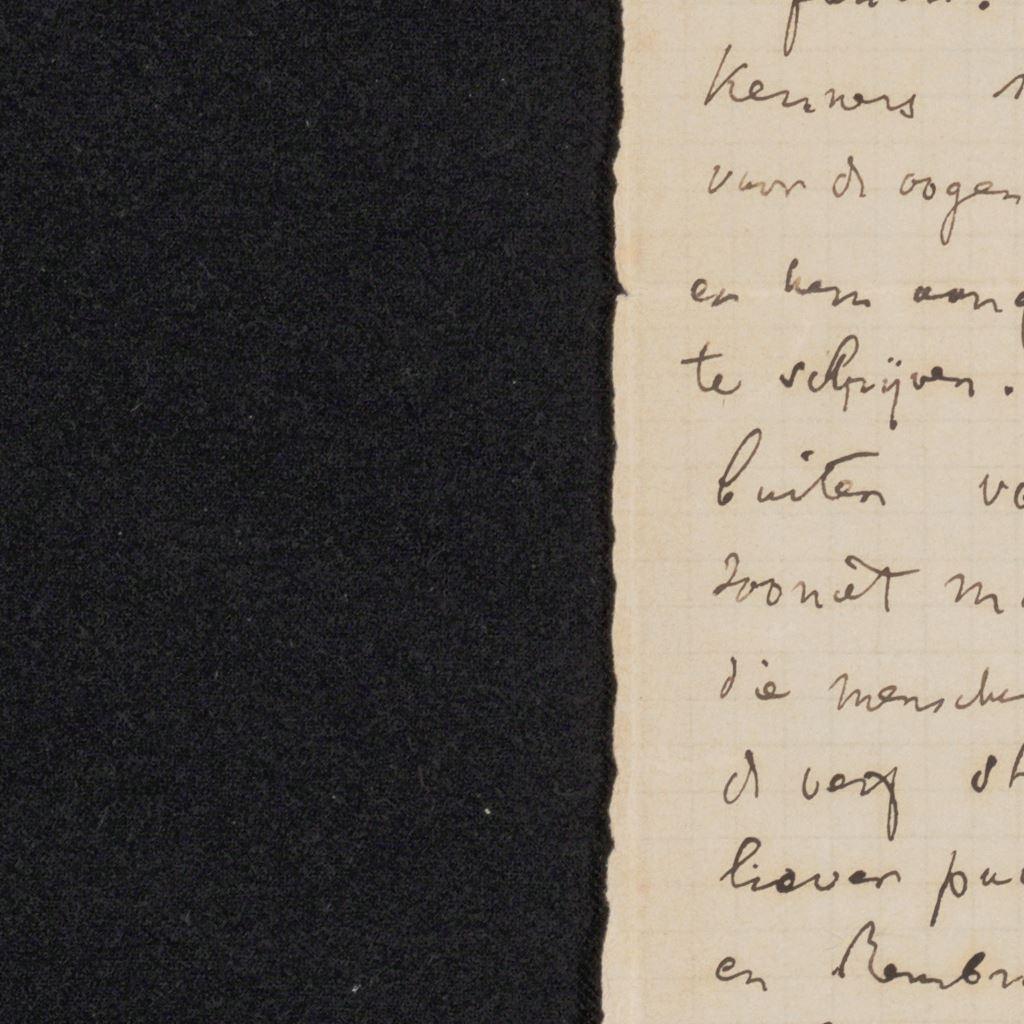 Kenners
voor de oogen
en hem aang
te schrijven.
buiten vo
zooniet m
die mensche
de verf st
liever pu
en Rembr